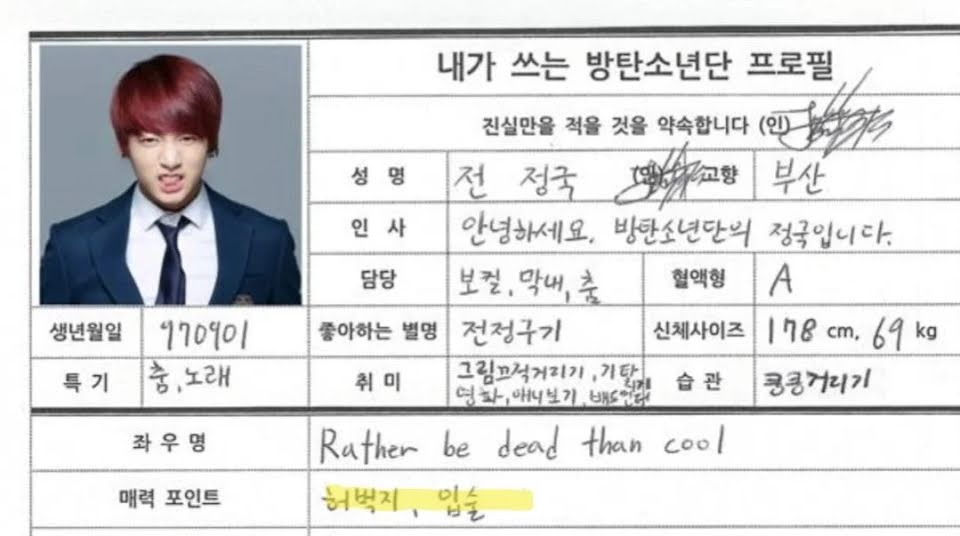 내가 쓰는 방탄소년단 프로필
진실만을 적을 것을 약속합니다 (인)
성 명 전 정국 (인) 고향 부산
인 사 안녕하세요. 방탄소년단의 정국입니다.
담당 보컬, 막내, 춤 혈액형 A
생년월일 970901 좋아하는 별명 전정구기 신체사이즈 178 cm, 69 kg
특 기 춤, 노래 취 미 그림끄적거리기, 기타 습 관 킁킁거리기
영화, 애니보기, 배드민턴
좌우명 Rather be dead than cool
매력 포인트 허벅지, 입술